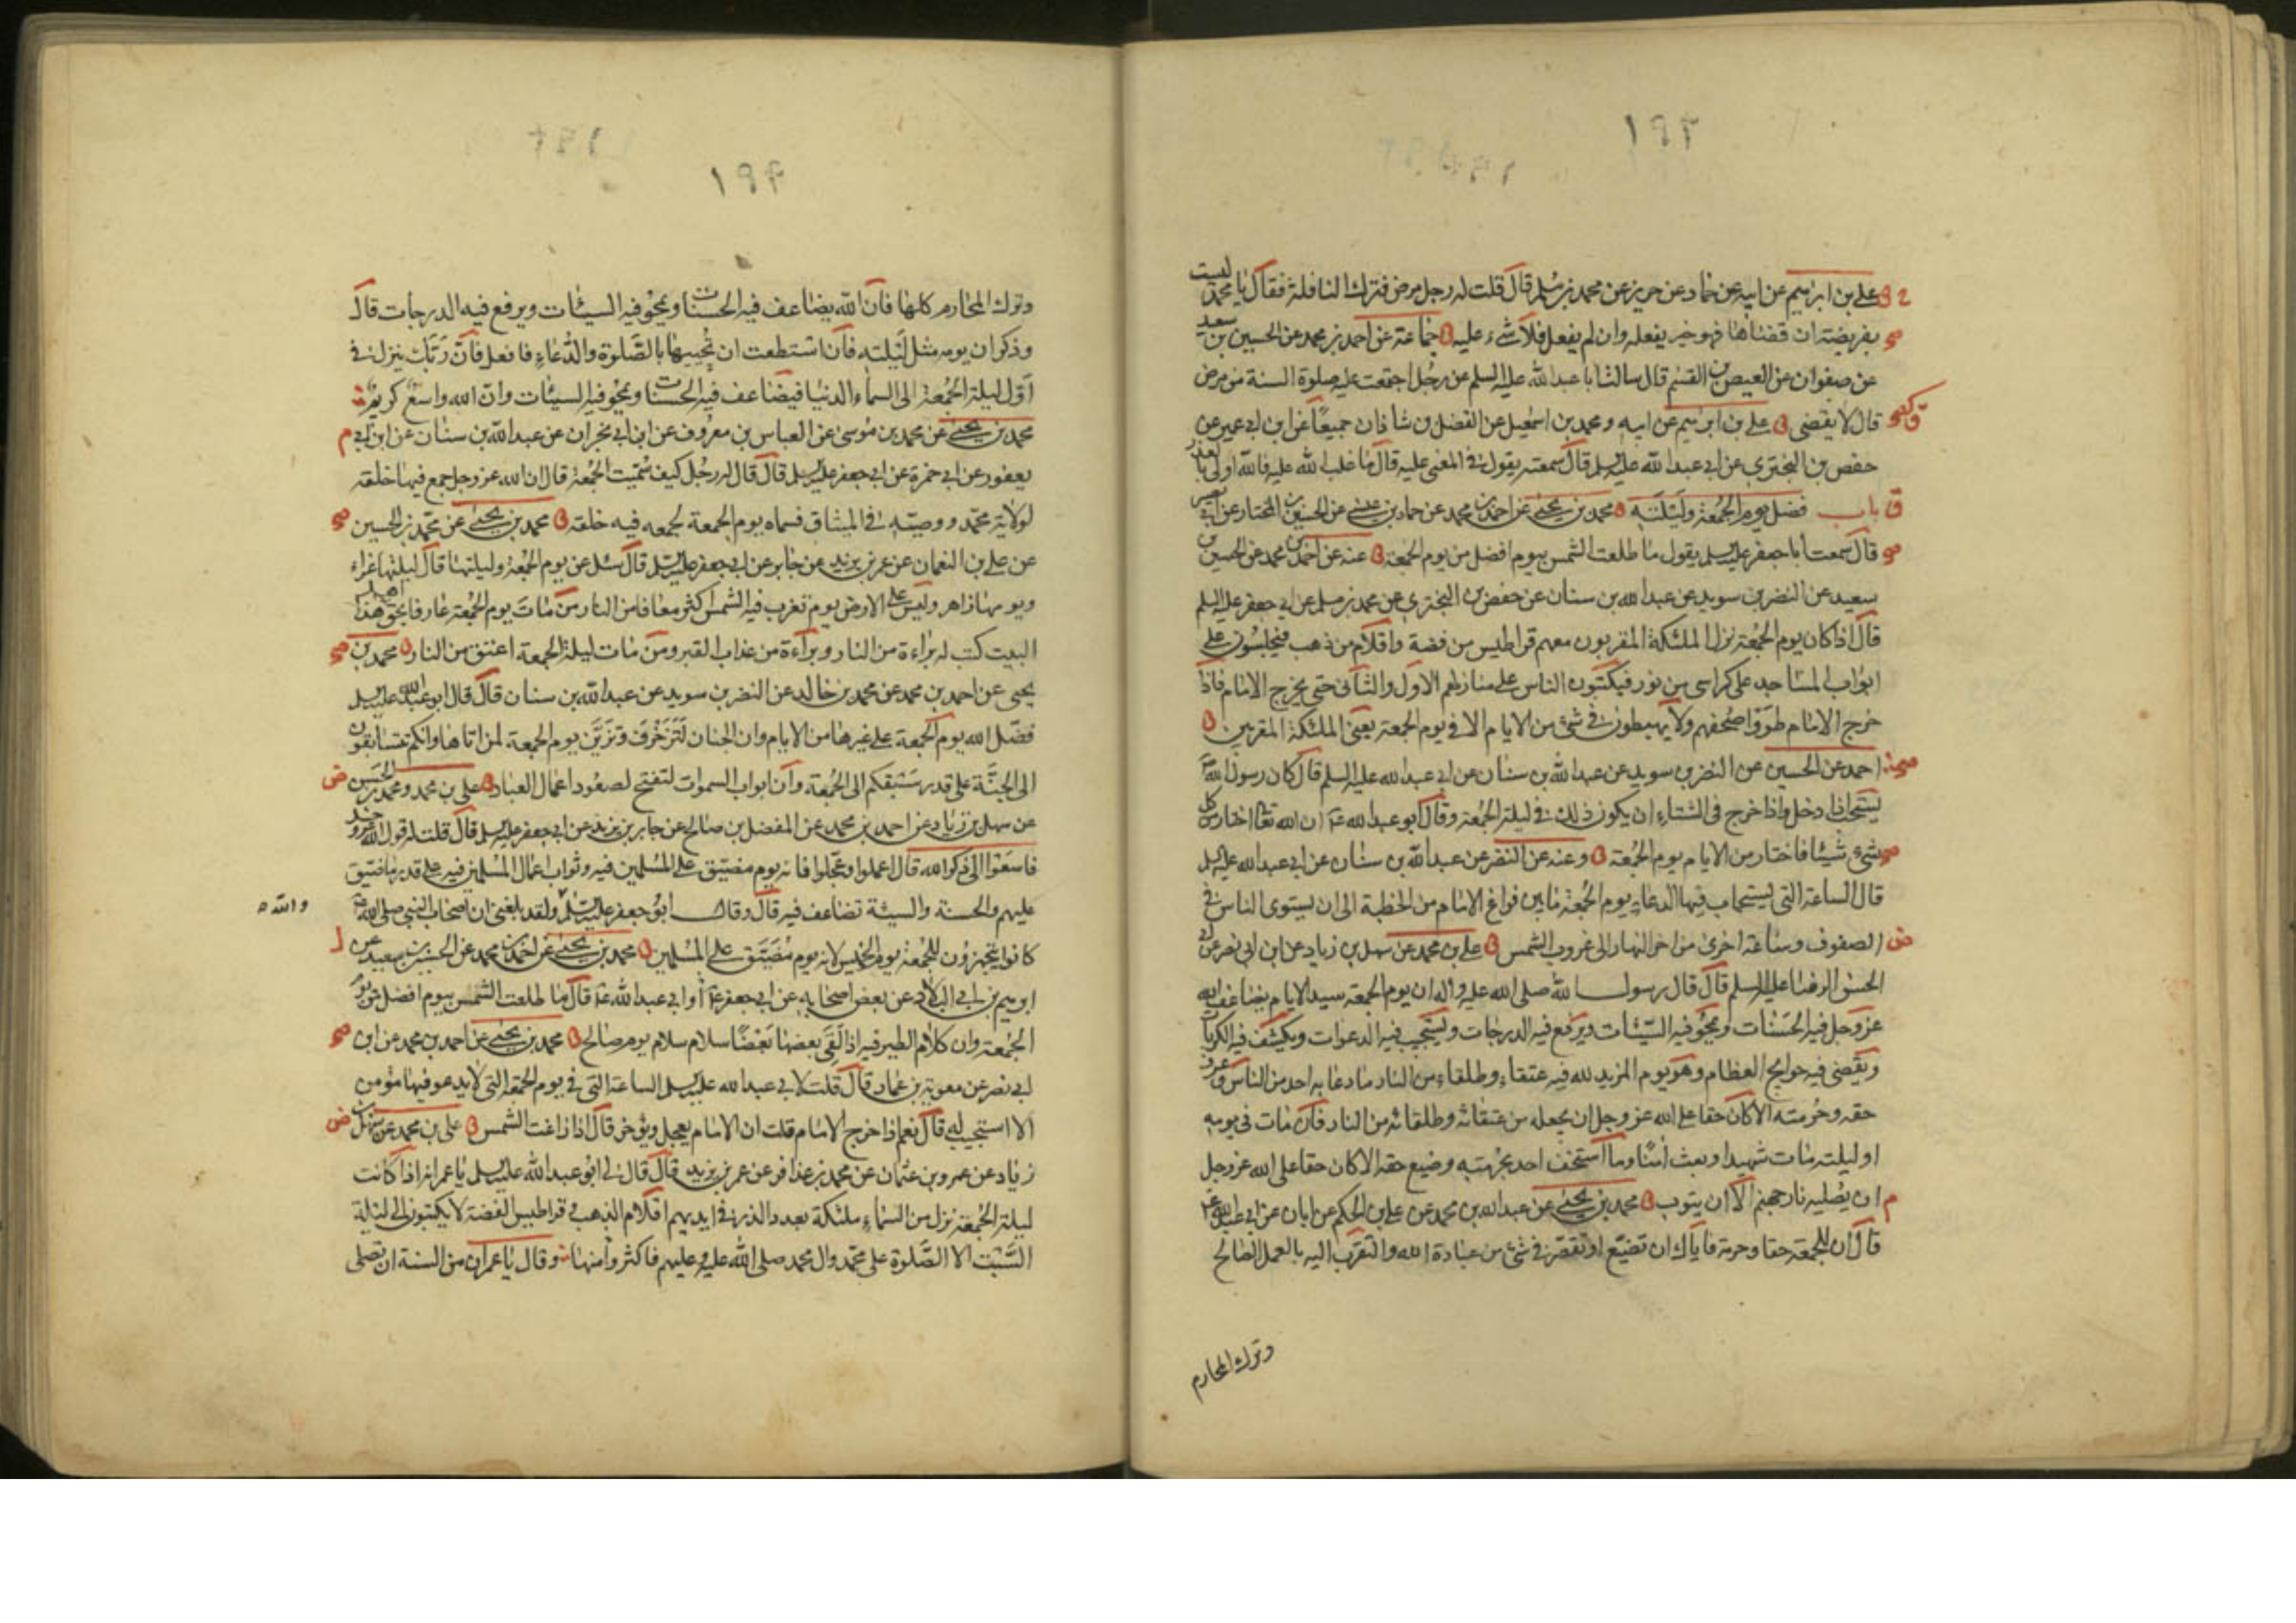 ١٩٣
علي بن ابرهيم عن ابيه عن حماد عن حريز عن محمد بن مسلم قال قلت له رجل مرض فترك النافلة فقال يا محمد ليست
بفريضة ان قضاها فهو خير يفعله وان لم يفعل فلا شيء عليه جماعة عن احمد بن محمد عن الحسين بن سعيد
عن صفوان عن العيص بن القسم قال سالت ابا عبد الله عليه السلم عن رجل اجتمعت عليه صلوة السنة من مرض
قال لا يقضي علي بن ابرهيم عن ابيه ومحمد بن اسمعيل عن الفضل بن شاذان جميعا عن ابن ابي عمير عن
حفص بن البختري عن ابي عبد الله عليه السلم قال سمعته يقول في المغمى عليه قال ما غلب الله عليه فالله اولى بالعذر
باب فضل يوم الجمعة وليلته محمد بن يحيى عن احمد بن محمد عن حماد بن عيسى عن الحسين بن المختار عن ابي بصير
قال سمعت ابا جعفر عليه السلم يقول ما طلعت الشمس بيوم افضل من يوم الجمعة عنه عن احمد بن محمد عن الحسين بن
سعيد عن النضر بن سويد عن عبد الله بن سنان عن حفص بن البختري عن محمد بن مسلم عن ابي جعفر عليه السلم
قال اذا كان يوم الجمعة نزل الملئكة المقربون معهم قراطيس من فضة واقلام من ذهب فيجلسون على
ابواب المساجد على كراسي من نور فيكتبون الناس على منازلهم الاول والثاني حتى يخرج الامام فاذا
خرج الامام طووا صحفهم ولا يهبطون في شئ من الايام الا في يوم الجمعة يعني الملئكة المقربين
احمد عن الحسين عن النضر بن سويد عن عبد الله بن سنان عن ابي عبد الله عليه السلم قال كان رسول الله ص
يستحب اذا دخل واذا خرج في الشتاء ان يكون ذلك في ليلة الجمعة وقال ابو عبد الله ع ان الله تعالى اختار من كل
شيء شيئا فاختار من الايام يوم الجمعة وعنه عن النضر عن عبد الله بن سنان عن ابي عبد الله عليه السلم
قال الساعة التي يستجاب فيها الدعاء يوم الجمعة ما بين فراغ الامام من الخطبة الى ان يستوي الناس في
الصفوف وساعة اخرى من اخر النهار الى غروب الشمس علي بن محمد عن سهل بن زياد عن ابن ابي نصر عن ابي
الحسن الرضا عليه السلم قال قال رسول الله صلى الله عليه واله ان يوم الجمعة سيد الايام يضاعف الله
عز وجل فيه الحسنات ويمحو فيه السيئات ويرفع فيه الدرجات ويستجيب فيه الدعوات ويكشف فيه الكربات
ويقضي فيه حوايج العظام وهو يوم المزيد لله فيه عتقاء وطلقاء من النار ما دعا به احد من الناس وعرف
حقه وحرمته الا كان حقا على الله عز وجل ان يجعله من عتقائه وطلقائه من النار فان مات في يومه
او ليلته مات شهيدا وبعث امنا وما استخف احد بحرمته وضيع حقه الا كان حقا على الله عز وجل
ان يصليه نار جهنم الا ان يتوب محمد بن يحيى عن عبد الله بن محمد عن علي بن الحكم عن ابان عن ابي عبد الله ع
قال ان للجمعة حقا وحرمة فاياك ان تضيع او تقصر في شئ من عبادة الله والتقرب اليه بالعمل الصالح
وترك المحارم
١٩٤
وترك المحارم كلها فان الله يضاعف فيه الحسنات ويمحو فيه السيئات ويرفع فيه الدرجات قال
وذكر ان يومه مثل ليلته فان استطعت ان تحييها بالصلوة والدعاء فافعل فان ربك ينزل في
اول ليلة الجمعة الى السماء الدنيا فيضاعف فيه الحسنات ويمحو فيه السيئات وان الله واسع كريم
محمد بن يحيى عن محمد بن موسى عن العباس بن معروف عن ابن ابي نجران عن عبد الله بن سنان عن ابن ابي
يعفور عن ابي حمزة عن ابي جعفر عليه السلم قال قال له رجل كيف سميت الجمعة قال ان الله عز وجل جمع فيها خلقه
لولاية محمد ووصيه في الميثاق فسماه يوم الجمعة لجمعه فيه خلقه محمد بن يحيى عن محمد بن الحسين
عن علي بن النعمان عن عمر بن يزيد عن جابر عن ابي جعفر عليه السلم قال سئل عن يوم الجمعة وليلتها قال ليلتها غراء
ويومها زاهر وليس على الارض يوم تغرب فيه الشمس اكثر معافا من النار من مات يوم الجمعة عارفا بحق اهل هذا
البيت كتب له براءة من النار وبراءة من عذاب القبر ومن مات ليلة الجمعة اعتق من النار محمد بن
يحيى عن احمد بن محمد عن محمد بن خالد عن النضر بن سويد عن عبد الله بن سنان قال قال ابو عبد الله عليه السلم
فضل الله يوم الجمعة على غيرها من الايام وان الجنان لتزخرف وتزين يوم الجمعة لمن اتاها وانكم تتسابقون
الى الجنة على قدر سبقكم الى الجمعة وان ابواب السموات لتفتح لصعود اعمال العباد علي بن محمد ومحمد بن الحسن
عن سهل بن زياد عن احمد بن محمد عن المفضل بن صالح عن جابر بن يزيد عن ابي جعفر عليه السلم قال قلت له قول الله عز وجل
فاسعوا الى ذكر الله قال اعملوا وعجلوا فانه يوم مضيق على المسلمين فيه وثواب اعمال المسلمين فيه على قدر ما ضيق
عليهم والحسنة والسيئة تضاعف فيه قال وقال ابو جعفر عليه السلم ولقد بلغني ان اصحاب النبي صلى الله ص
والله
كانوا يتجهزون للجمعة يوم الخميس لانه يوم مضيق على المسلمين محمد بن يحيى عن احمد بن محمد عن الحسين بن سعيد عن
ابرهيم بن ابي البلاد عن بعض اصحابه عن ابي جعفر ع او ابي عبد الله ع قال ما طلعت الشمس بيوم افضل من يوم
الجمعة وان كلام الطير فيه اذا لقى بعضها بعضا سلام سلام يوم صالح محمد بن يحيى عن احمد بن محمد عن ابن
ابي نصر عن معوية بن عمار قال قلت لابي عبد الله عليه السلم الساعة التي في يوم الجمعة التي لا يدعو فيها مؤمن
الا استجيب له قال نعم اذا خرج الامام قلت ان الامام يعجل ويؤخر قال اذا زاغت الشمس علي بن محمد عن سهل بن
زياد عن عمرو بن عثمان عن محمد بن عذافر عن عمر بن يزيد قال قال لي ابو عبد الله عليه السلم يا عمر انه اذا كانت
ليلة الجمعة نزل من السماء ملئكة بعدد الذر في ايديهم اقلام الذهب وقراطيس الفضة لا يكتبون الى ليلة
السبت الا الصلوة على محمد وال محمد صلى الله عليه وعليهم فاكثروا منها وقال يا عمر ان من السنة ان تصلي